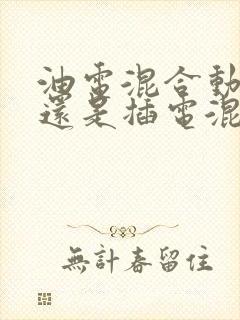 油電混合動
還是插電混
無計春留住